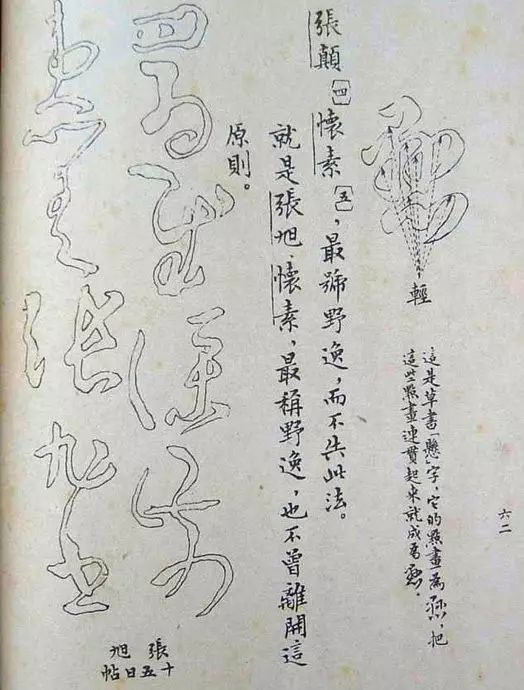 六二
這是草書「懸」字，它的點畫為，把
這些點畫連貫起來就成為。
輕
張顛〔四〕懷素〔五〕，最號野逸，而不失此法。
就是張旭、懷素，最稱野逸，也不曾離開這
原則。
張旭書
張旭
十五日帖